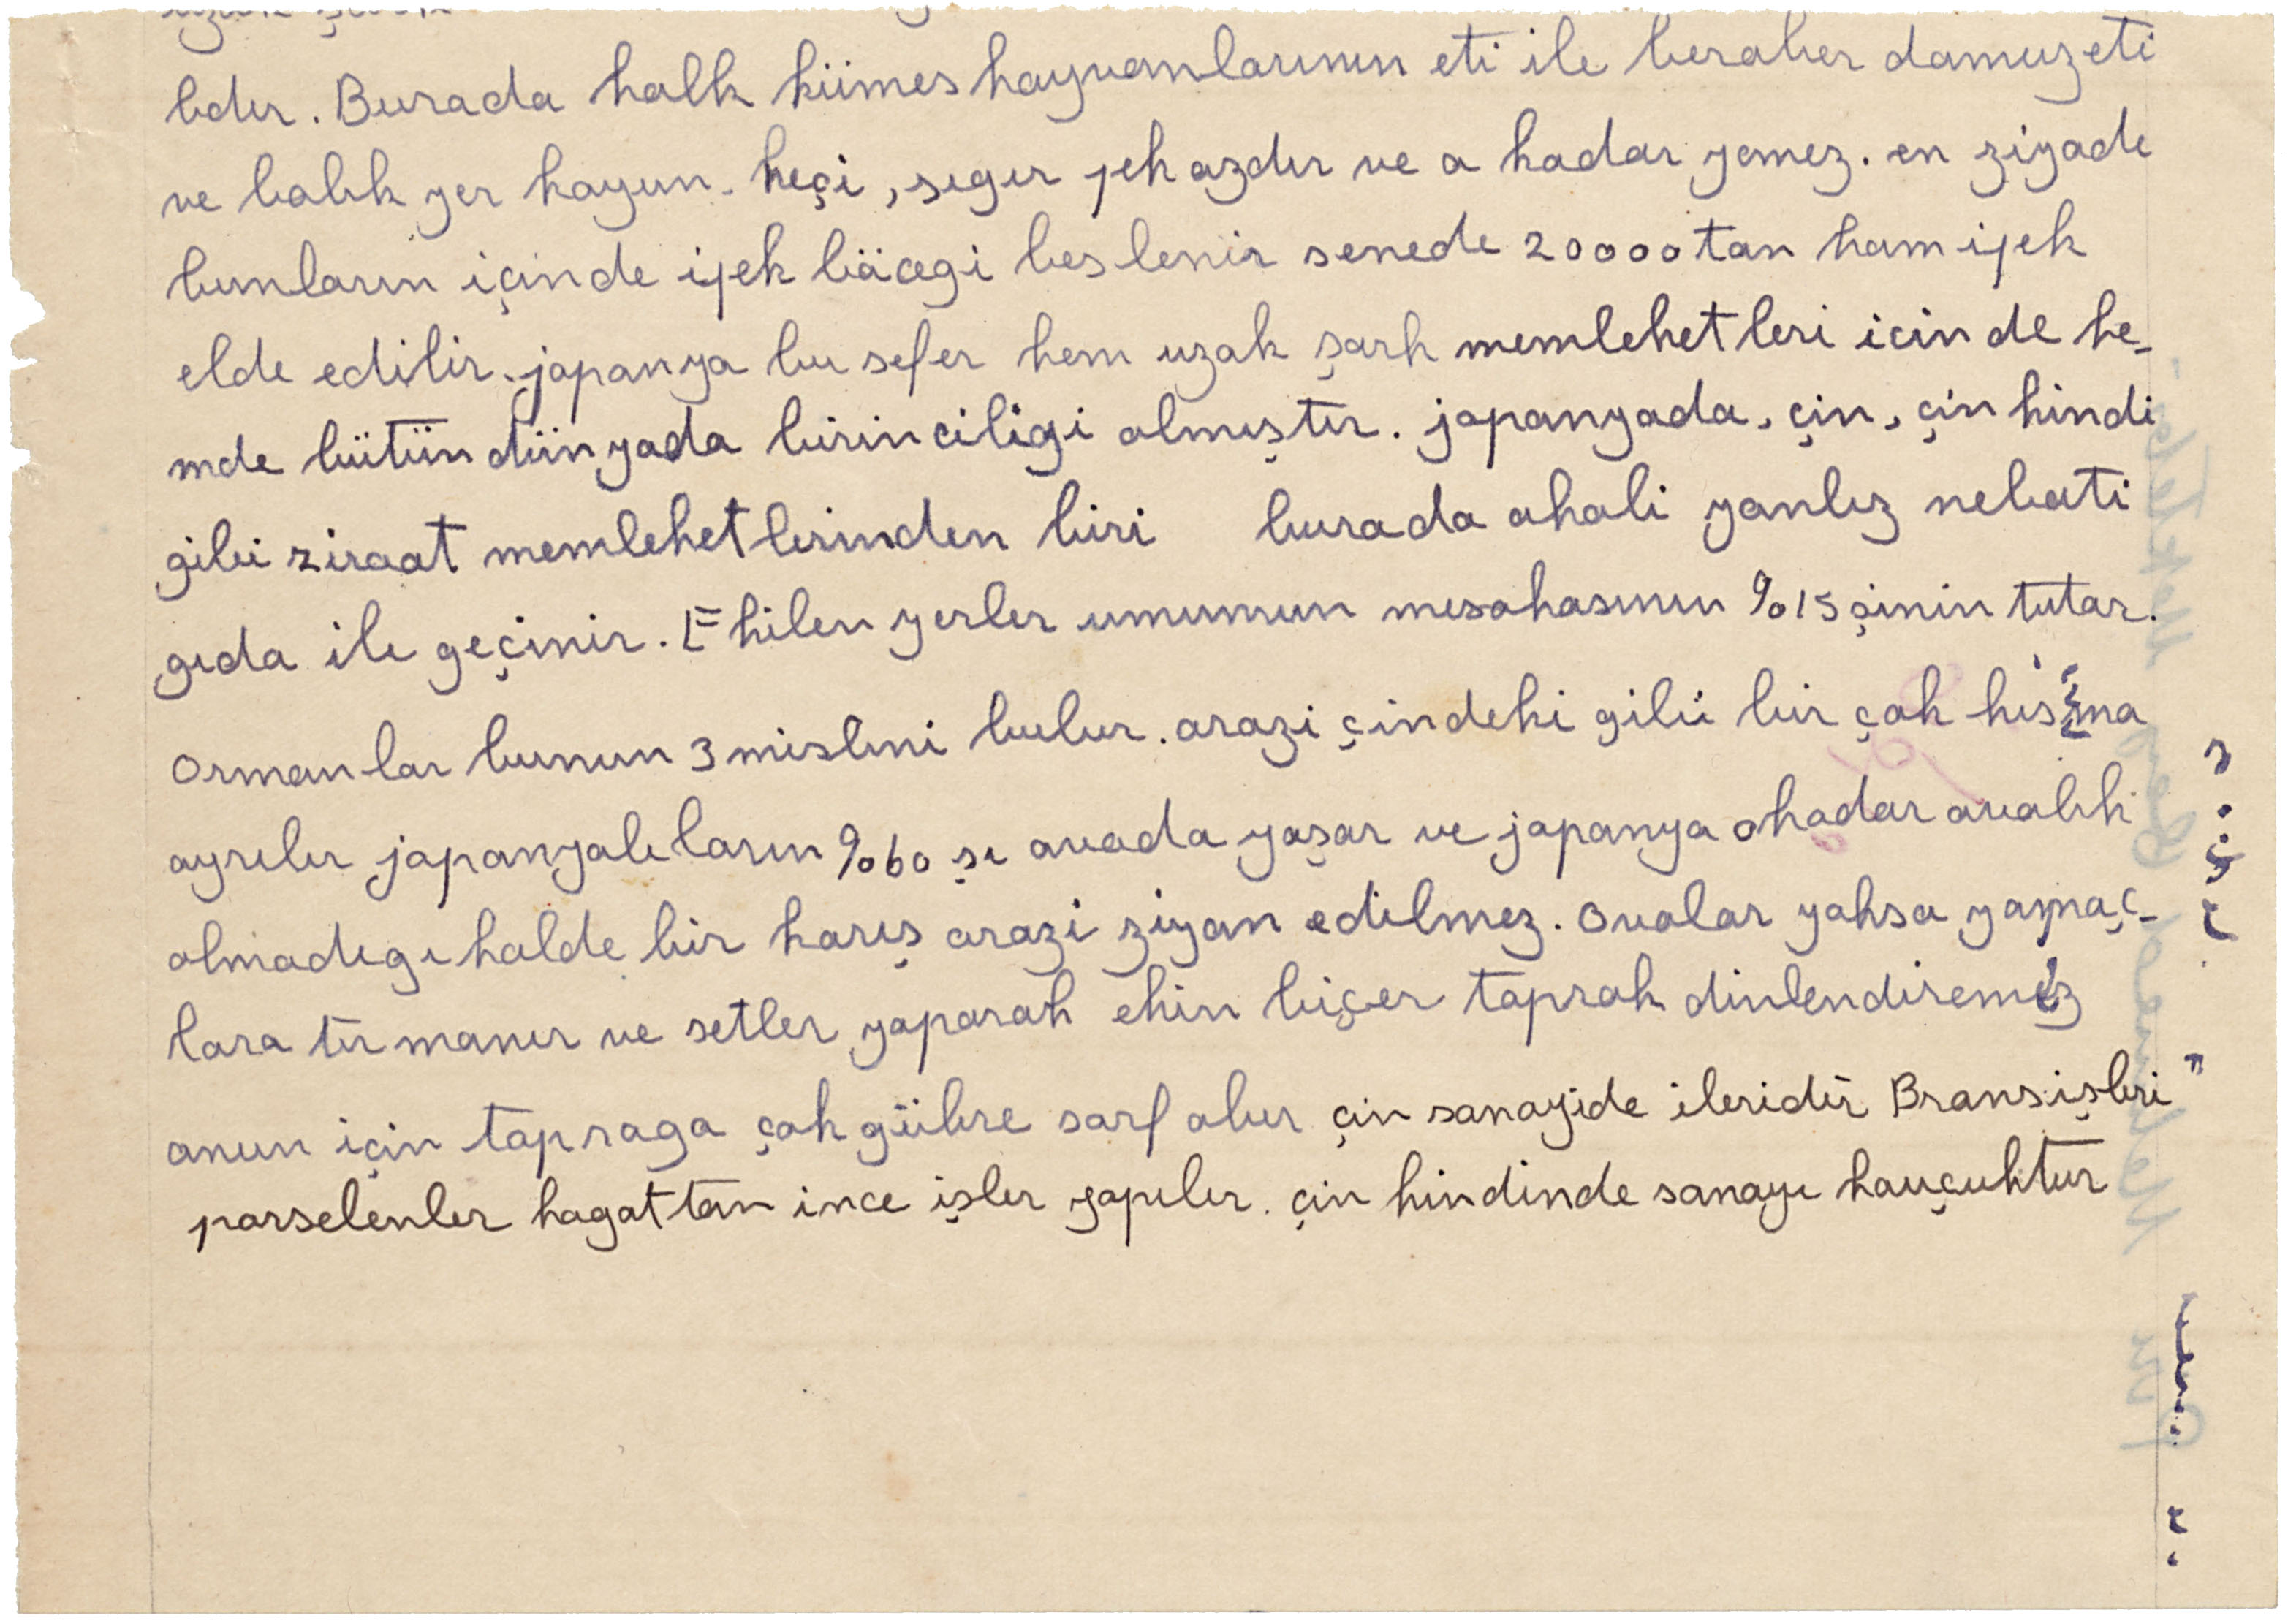 lıdır. Burada halk kümes hayvanlarının eti ile beraber domuz eti
ve balık yer koyun. keçi, sıgır pek azdır ve o kadar yemez. en ziyade
bunların içinde ipek böcegi beslenir senede 20000 ton ham ipek
elde edilir. japonya bu sefer hem uzak şark memleketleri icinde he-
mde bütün dünyada birinciligi almıştır. japonyada, çin, çin hindi
gibi ziraat memleketlerinden biri burada ahali yanlız nebati
gıda ile geçinir. Ekilen yerler umumun mesahasının %15 şinin tutar.
Ormanlar bunun 3 mislini bulur. arazi çindeki gibi bir çok kısıma
ayrılır japonyalıların %60 şı ovada yaşar ve japonya okadar ovalık
olmadıgı halde bir karış arazi ziyan edilmez. Ovalar yoksa yamaç-
lara tırmanır ve setler yaparak ekin biçer toprak dinlendiremez
onun için topraga çok gübre sarf olur çin sanayide ileridir Brons işleri
porselenler kagattan ince işler yapılır. çin hindinde sanayı kauçuktur